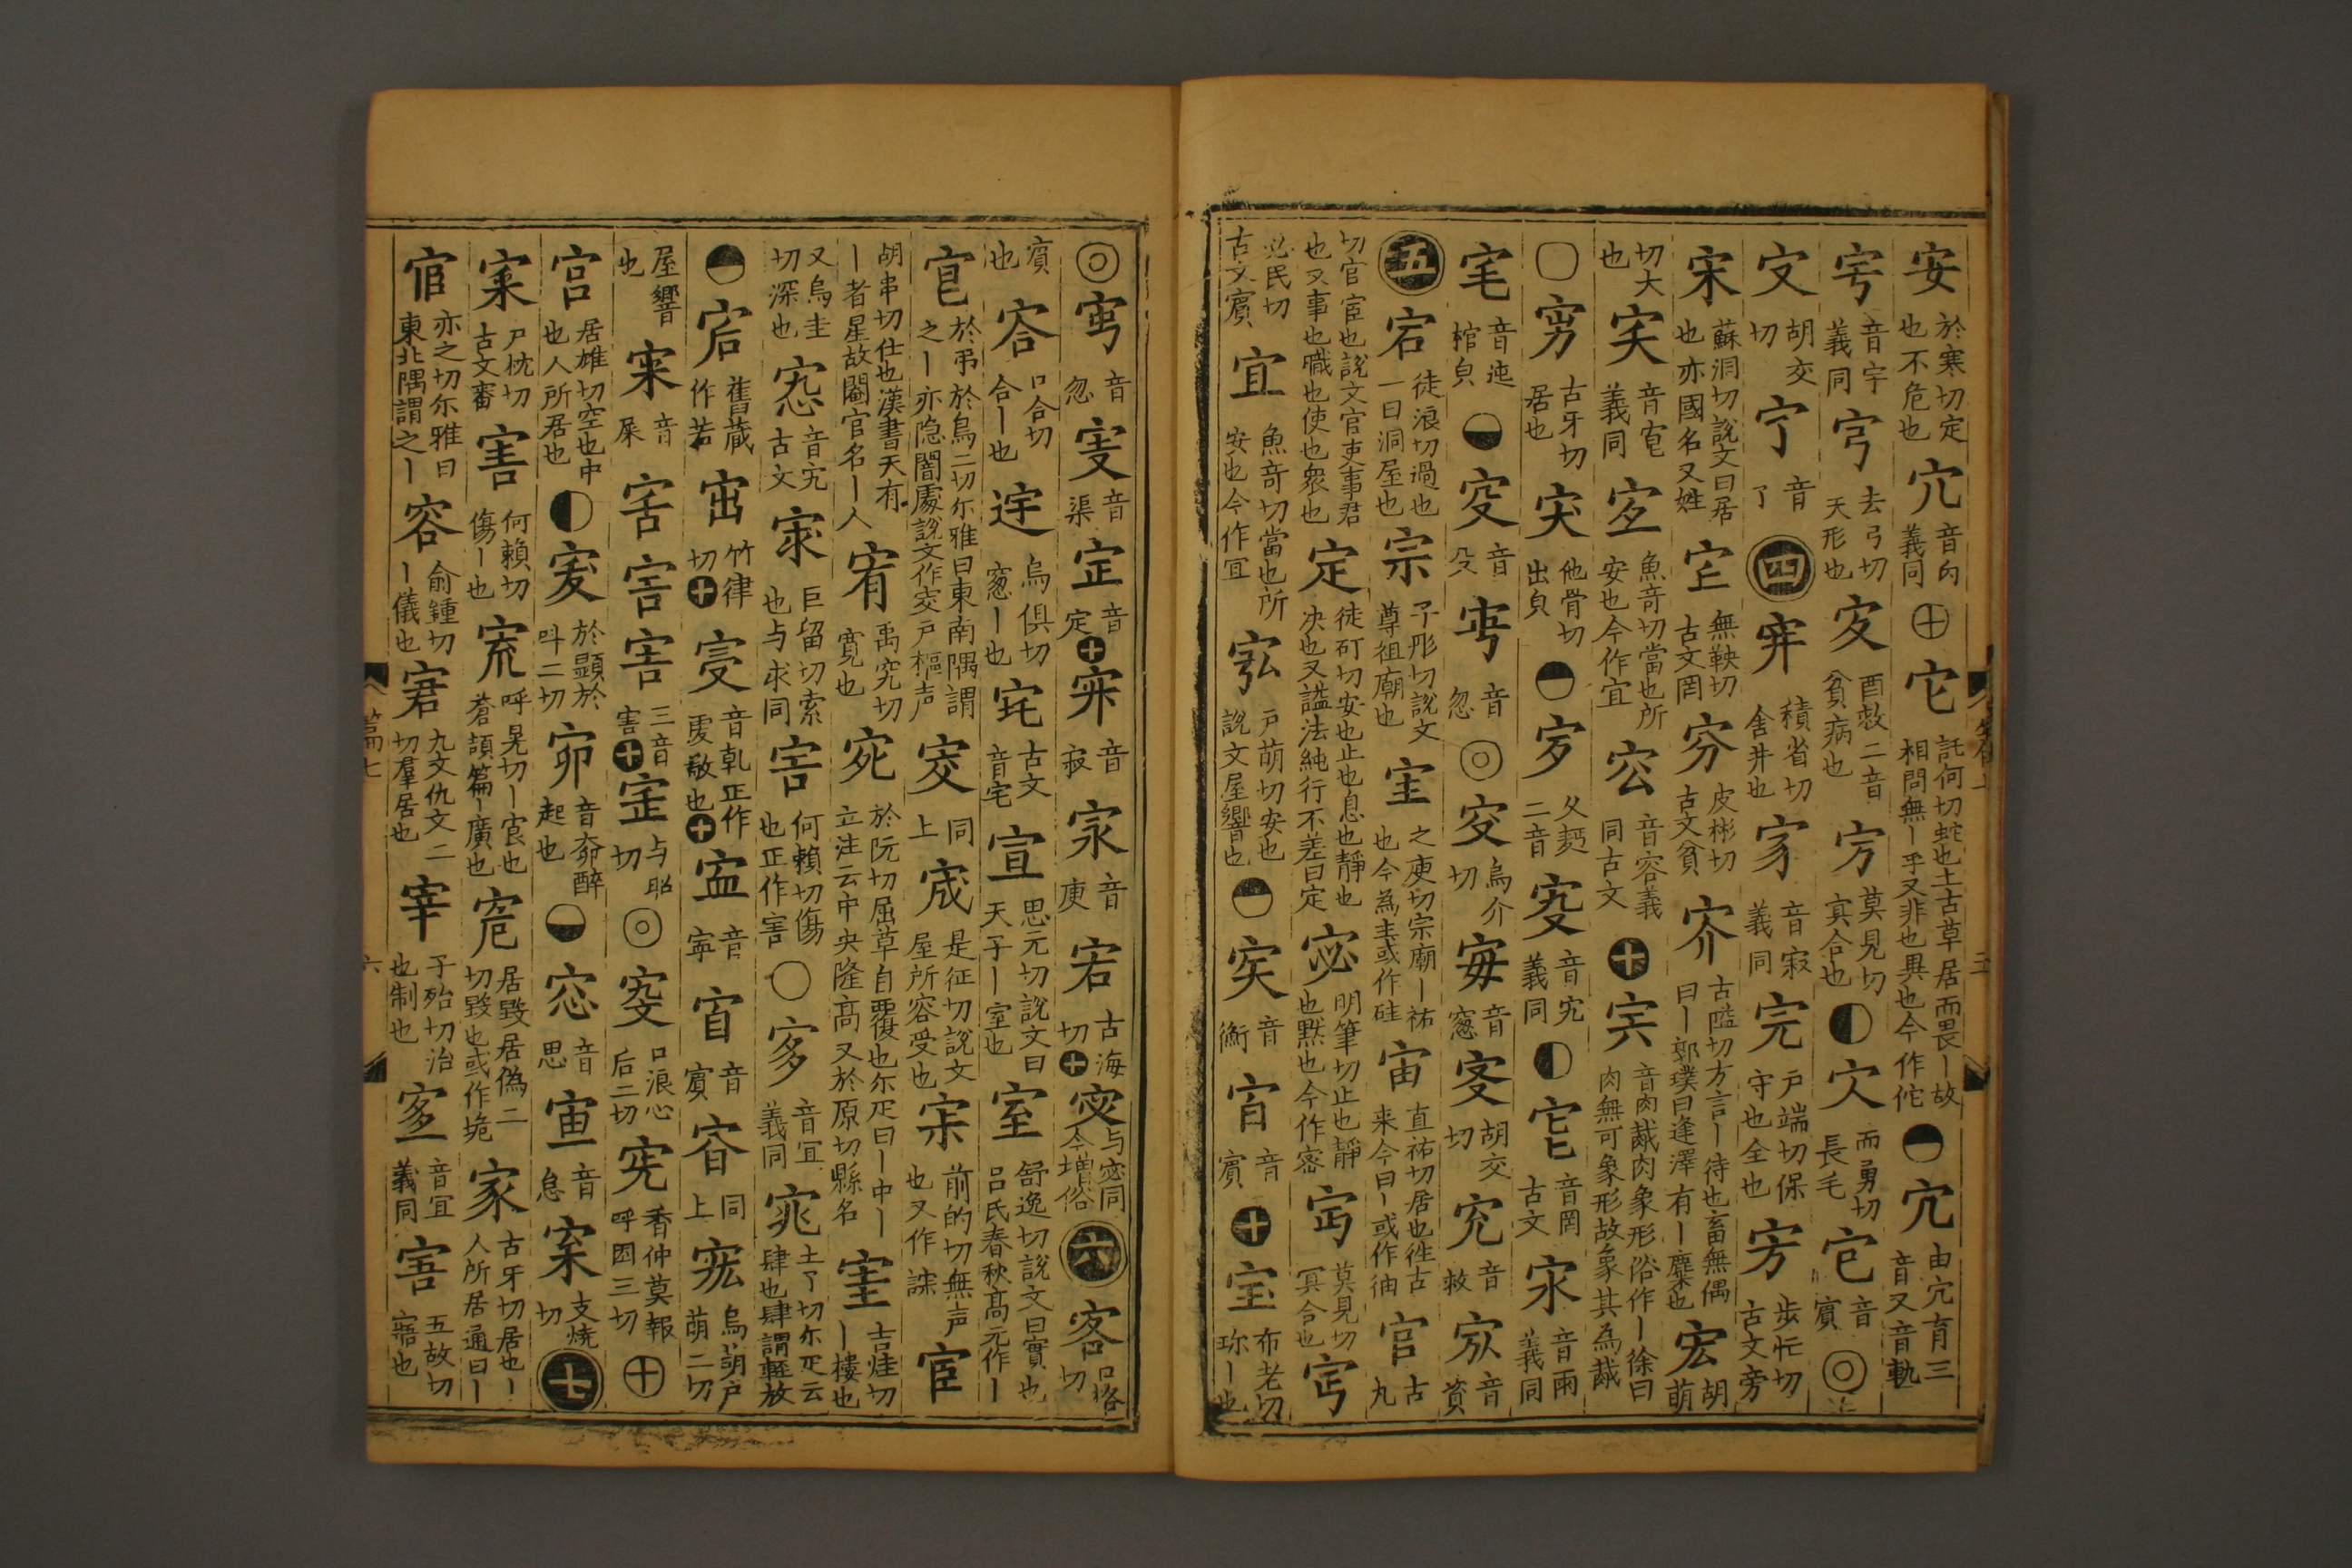 安於寒切定也不危也宂音肉義同㊉它託何切蛇也上古草居而畏丨故相問無丨乎又非也異也今作佗◓宂由宂育三音又音軌
穻音宇義同穹去弓切天形也㝌酉救二音貧病也㝑莫見切㝠合也◐宊而勇切長毛㝉音賓◎
㝊胡交切㝋音了四穽積省切舍井也家音寂義同完戶端切保守也全也㝑步忙切古文旁
宋蘇洞切說文曰居也亦國名又姓㝎無鞅切古文罔㝏皮彬切古文貧㝏古隘切方言丨待也畜無偶曰丨郭璞曰逢澤有丨麋也宏胡萌
切大也実音㝔義同㝖魚奇切當也所安也今作宜㝐音容義同古文⊕宍音肉胾肉象形俗作丨徐曰肉無可象形故象其為胾
〇㝒古牙切居也宊他骨切出皃◓㝍久𠔃二音㝌音宄義同◐㝎音罔古文㝐音兩義同
㝇音迍棺皃◒㝛音殁㝔音忽◎㝔烏介切㝧音窓㝖胡交切㝌音救㝐音資
五宕徒浪切過也一曰洞屋也宗子彤切說文尊徂廟也宔之庾切宗廟丨祏也今為主或作砫宙直祐切居也徃古来今曰丨或作㣙官古丸
切官宦也說文官吏事君也又事也職也使也衆也定徒矴切安也止也息也靜也决也又謚法純行不差曰定宓明筆切止也靜也黙也今作密㝰莫見切㝠合也㝰
必民切古文賓宜魚奇切當也所安也今作宐宖戶萌切安也說文屋響也◒㝨音衡㝜音賓⊕宝布老切珎丨也
◎㝫音忽㝬音渠定音定⊕㝥音寂㝩音庚㝪古海切⊕㝝与宓同今增俗六客口格切
賓也㝓口合切合丨也㝢烏俱切窓丨也宅古文音宅宣思元切說文曰天子丨室也室舒逸切說文曰實也呂氏春秋髙元作丨
㝔於弔於鳥二切尔雅曰東南隅謂之丨亦隐闇處說文作㝔戶樞声㝔同上宬是征切說文屋所容受也宋前的切無声也又作𧧒宦
胡串切仕也漢書天有丨者星故閹官名丨人宥禹究切寬也宛於阮切屈草自覆也尔疋曰丨中丨立注云中央隆髙又於原切縣名㝔吉烓切丨樓也
又烏圭切深也㝸音宄古文㝭巨留切索也与求同害何頼切傷也正作害〇㝖音宜義同窕土了切尔疋云肆也肆謂輕放
◓㝪舊蔵作若㝧竹律切⊕㝛音乾正作虔敬也⊕寍音寧㝜音賓㝝同上㝗烏萌戶萌二切
屋響也㝥音屎害害害三音害⊕定与昭切◎㝔口浪心后二切㝒香仲莫報呼困三切㊉
宫居雄切空也中也人所居也◐㝨於顯於呌二切㝧音奅醉起也◒㝸音思宙音怠案支燒切七
㝥尸枕切古文審害何頼切傷丨也㝩呼晃切丨㝗也蒼頡篇丨廣也㝪居毀居偽二切毀也或作垝家古牙切居也丨人所居通曰丨
宧亦之切尔雅曰東北隅謂之丨容俞鍾切丨儀也宭九文仇文二切羣居也宰子殆切治也制也㝖音宜義同㝬五故切寤也
篇七
六